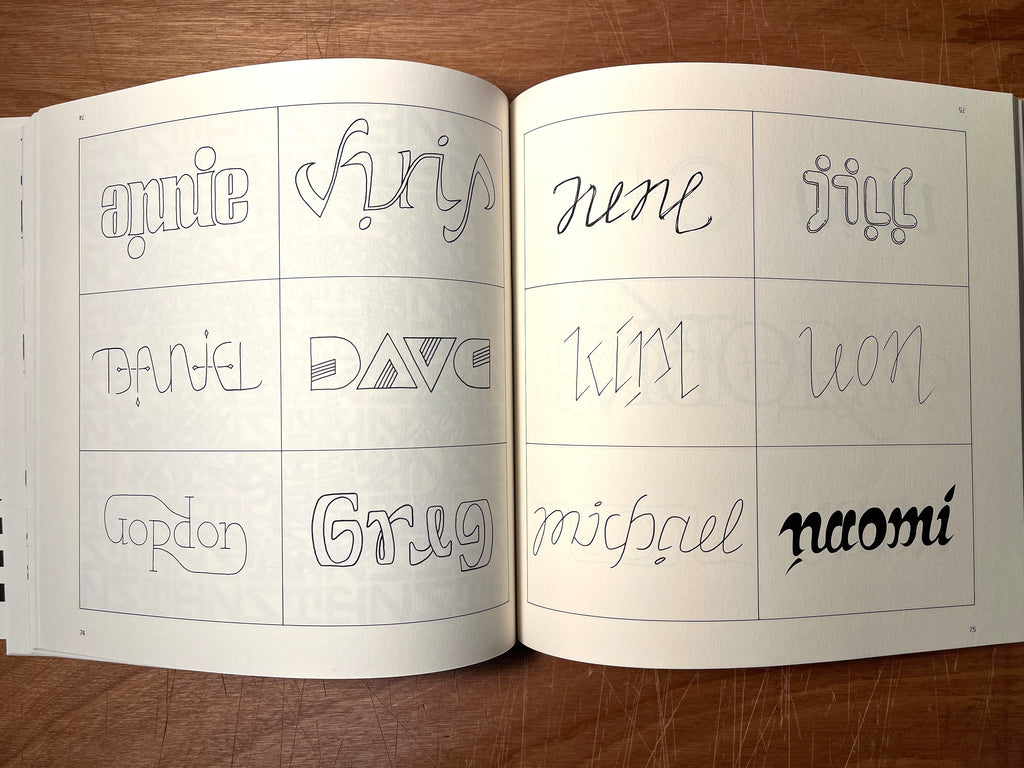 74
annie
chris
DANIEL
DAVE
Gordon
Greg
74
75
irene
jill
kim
leon
michael
naomi
75